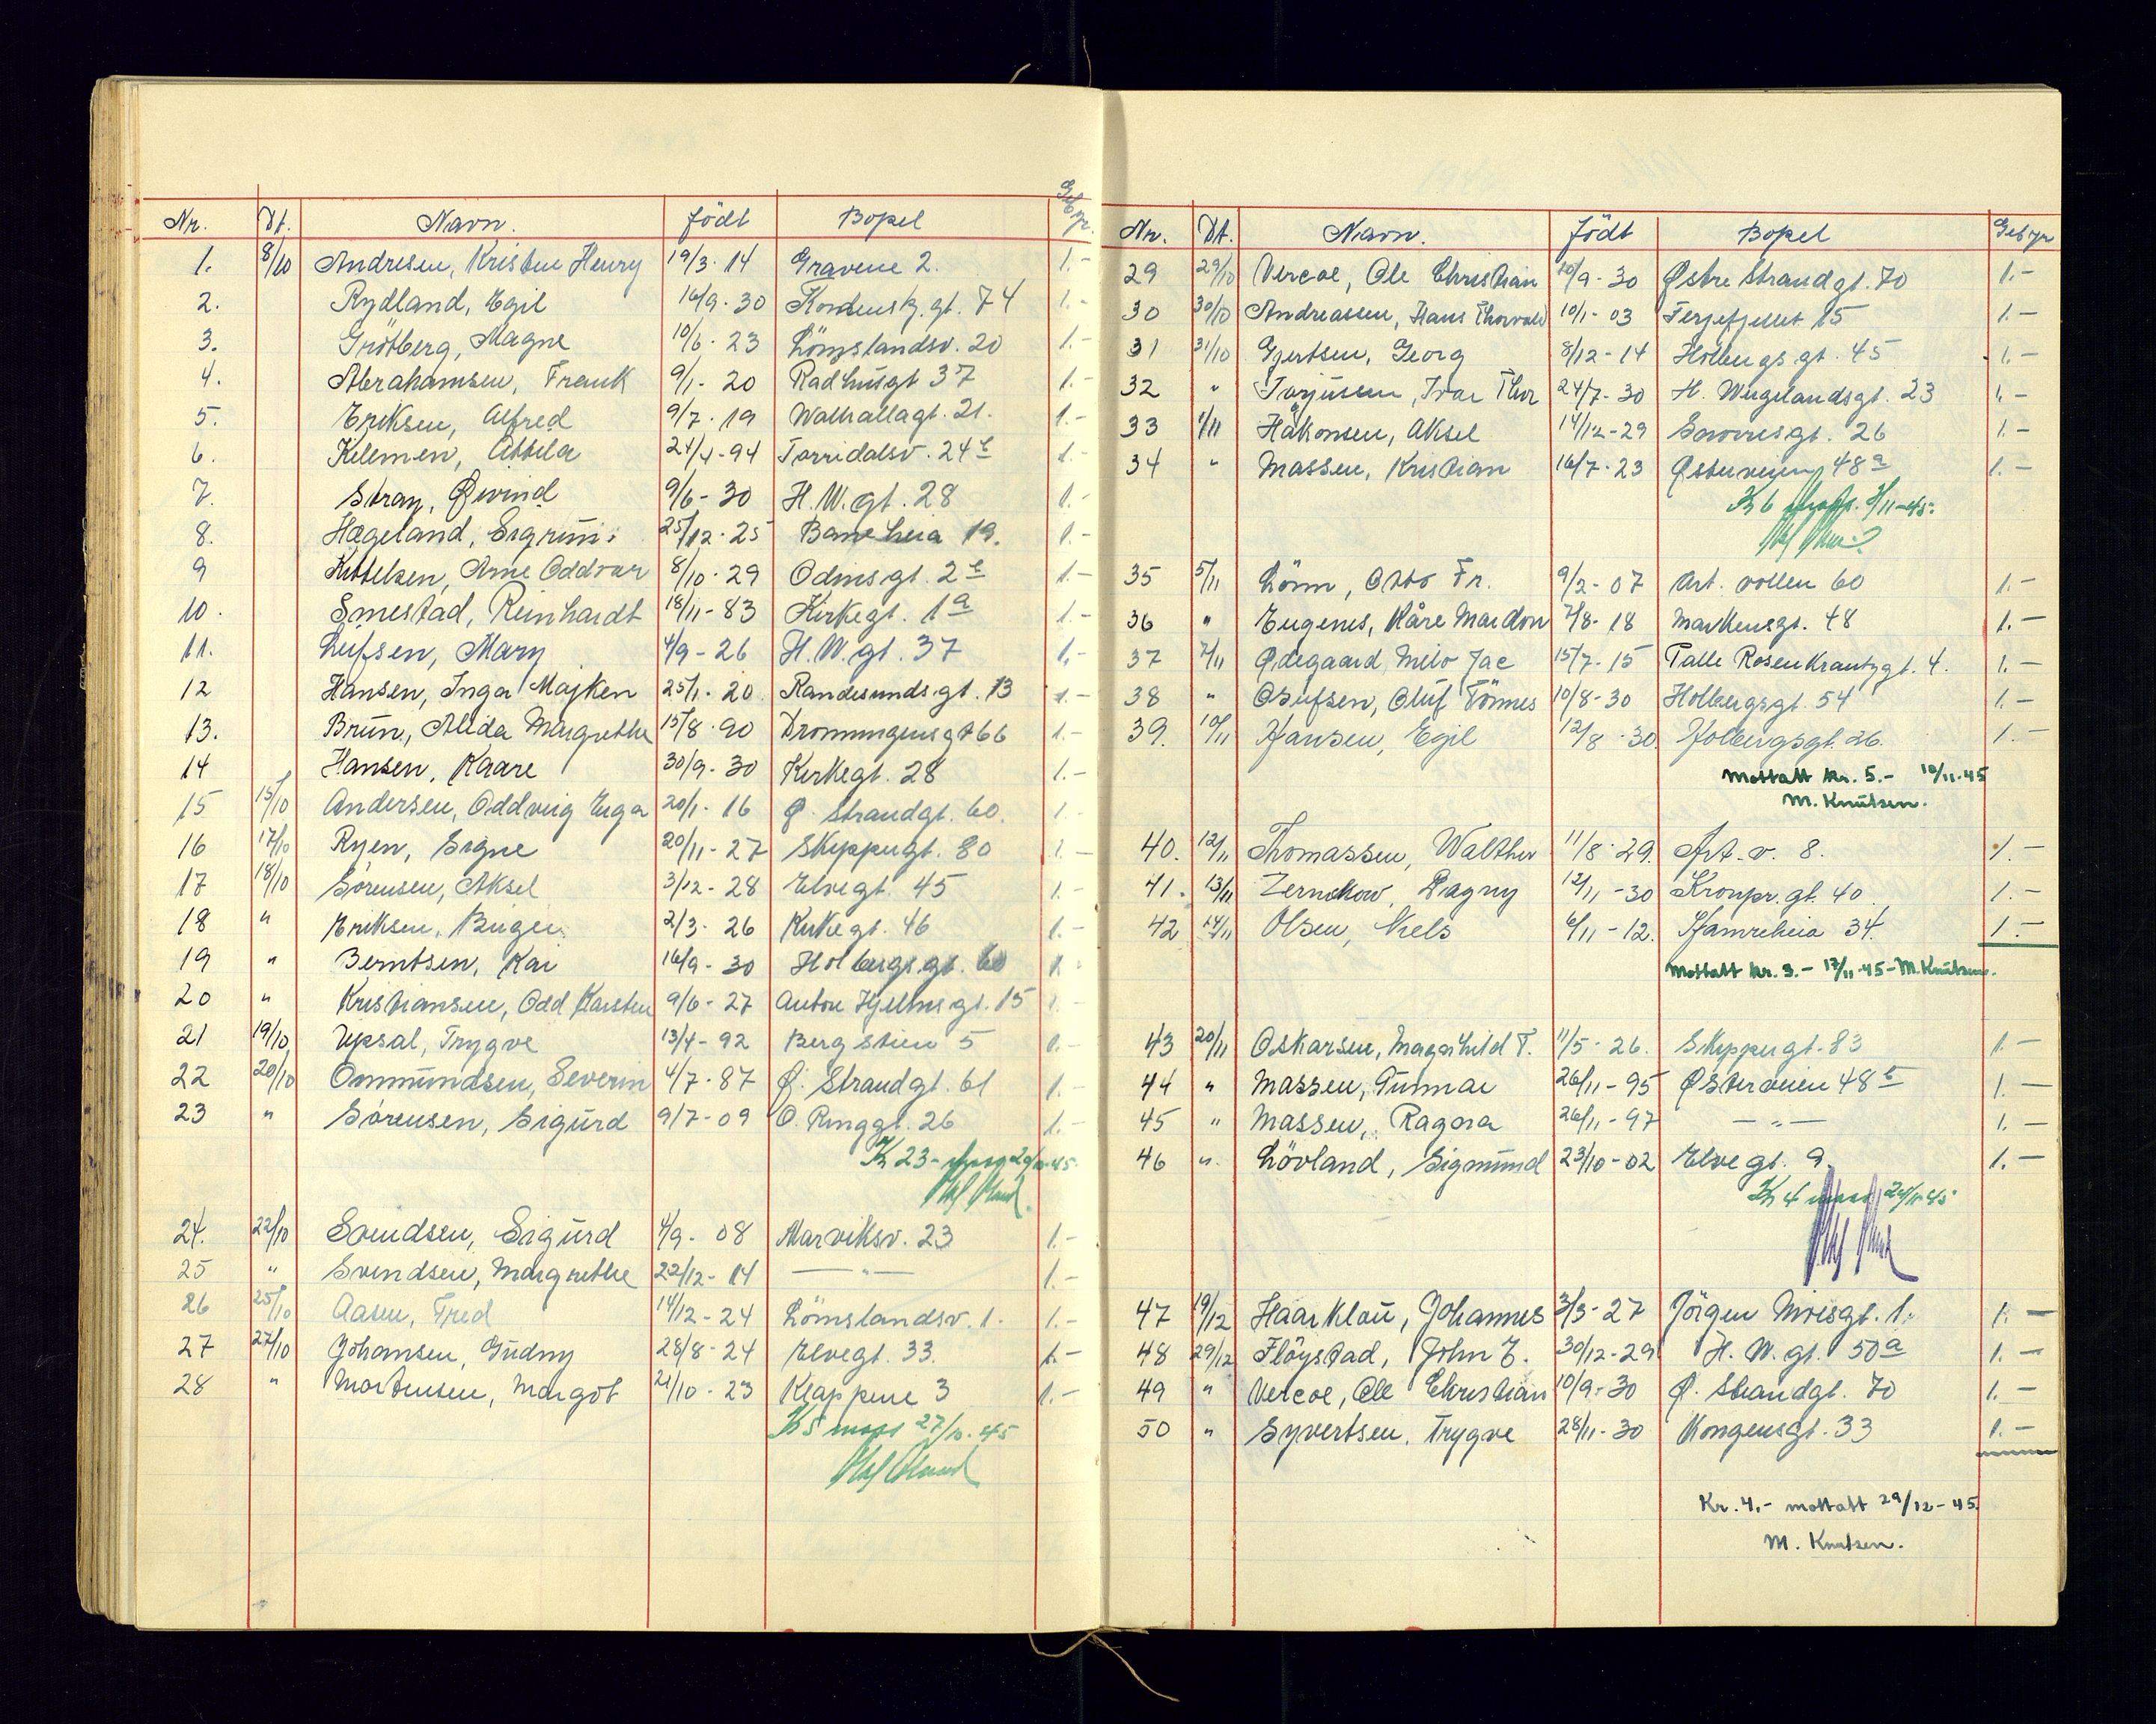 Nr. Dt. Navn. Födt Bopel Gebyr.
1. 8/10 Andresen, Kristine Henry 19/3-14 Gravene 2. 1.-
2. Rydland, Egil 16/9-30 gt. 74 1.-
3. Grötberg, Magne 10/6-23 Lömslandsv. 20 1.-
4. Abrahamsen, Frank 9/1-20 Radhusgt 37 1.-
5. Eriksen, Alfred 9/7-19 Walhallagt. 21. 1.-
6. Kelemen, Attila 24/4-94 Torridalsv. 24 1.-
7. Stray, Øivind 9/6-30 H.W.gt. 28 1.-
8. Hægeland, Sigrun 25/12-25 Baneheia 19. 1.-
9 Kittelsen, Arne Oddvar 8/10-29 Odinsgt. 2 1.-
10. Smestad, Reinhardt 18/11-83 Kirkegt. 1a 1.-
11. Leifsen, Mary 4/9-26 H.W.gt. 37 1.-
12 Hansen, Inga Majken 25/1-20. Randesundsgt. 13 1.-
13. Brun, Alida Margrethe 15/8-90 Dronningensgt 66 1.-
14 Hansen, Kaare 30/9-30 Kirkegt. 28 1.-
15 15/10 Andersen, Oddveig Inga 20/1-16 Ø. Strandgt. 60. 1.-
16 17/10 Ryen, Signe 20/11-27 Skippergt. 80 1.-
17 18/10 Sörensen, Aksel 3/12-28 Elvegt. 45 1.-
18 " Eriksen, Birger 2/3-26 Kirkegt. 46 1.-
19 " Berntsen, Kai 16/9-30 Holbergsgt. 60 1.-
20 " Kristiansen, Odd Karsten 9/6-27 Anton Hjelmsgt. 15 1.-
21 19/10 Upsal, Trygve 13/4-92 Bergstien 5 1.-
22 20/10 Ommundsen, Severin 4/7-87 Ø. Strandgt. 61 1.-
23 " Sörensen, Sigurd 9/7-09 O. Ringgt. 26 1.-
Kr 23-
24. 22/10 Svendsen, Sigurd 4/9-08 Marviksv. 23 1.-
25 " Svendsen, Margrethe 22/12-14 — " — 1.-
26 25/10 Aasen, Fred 14/12-24 Lömslandsv. 1. 1.-
27 27/10 Johansen, Gudny 28/8-24 Elvegt. 33. 1.-
28 " Mortensen, Margot 21/10-23 Klappene 3 1.-
Kr 5 27/10-45
Nr. Dt. Navn. Födt Bopel Gebyr
29 29/10 Vercoe, Ole Christian 10/9-30 Østre Strandgt. 70 1.-
30 30/10 Andreassen, Hans Thorvald 10/1-03 Ferjefjellet 15 1.-
31 31/10 Gjertsen, Georg 8/12-14 Holbergsgt. 45 1.-
32 " Torjussen, Ivar Thor 24/7-30 H. Wergelandsgt. 23 1.-
33 1/11 Håkonsen, Aksel 14/12-29 Sverresgt. 26 1.-
34 " Massen, Kristian 16/7-23 Østerveien 48a 1.-
Kr 6 3/11-45.
35 5/11 Lönn, Otto Fr. 9/2-07 Art. vollen 60 1.-
36 " Eugenes, Kåre Mardon 7/8-18 Markensgt. 48 1.-
37 7/11 Ødegaard, Milo Jac 15/7-15 Palle Rosenkrantzgt. 4. 1.-
38 " Osufsen, Oluf Tönnes 10/8-30 Holbergsgt. 54 1.-
39. 10/11 Hansen, Egil 12/8-30. Holbergsgt. 26. 1.-
Mottatt kr. 5.- 10/11-45
M. Knutsen.
40. 12/11 Thomassen, Walther 11/8-29. Art.v. 8. 1.-
41. 13/11 Zernchow, Dagny 12/11-30 Kronpr.gt. 40. 1.-
42 14/11 Olsen, Niels 6/11-12. Hamreheia 34. 1.-
Mottatt kr. 3.- 17/11-45 - M. Knutsen.
43 20/11 Oskarsen, Magnhild T. 11/5-26. Skippergt. 83 1.-
44 " Massen, Gunnar 26/11-95 Østerveien 48 1.-
45 " Massen, Ragna 26/11-97 — " — 1.-
46 " Lövland, Sigmund 23/10-02 Elvegt. 9. 1.-
Kr 4 24/11-45
47 19/12 Haarklou, Johannes 3/3-27 Jörgen Moesgt. 1. 1.-
48 29/12 Flöystad, John E. 30/12-29 H.W.gt. 50a 1.-
49 " Vercoe, Ole Christian 10/9-30 Ø. Strandgt. 70 1.-
50 " Syvertsen, Trygve 28/11-30 Kongensgt. 33 1.-
Kr. 4.- mottatt 29/12-45.
M. Knutsen.